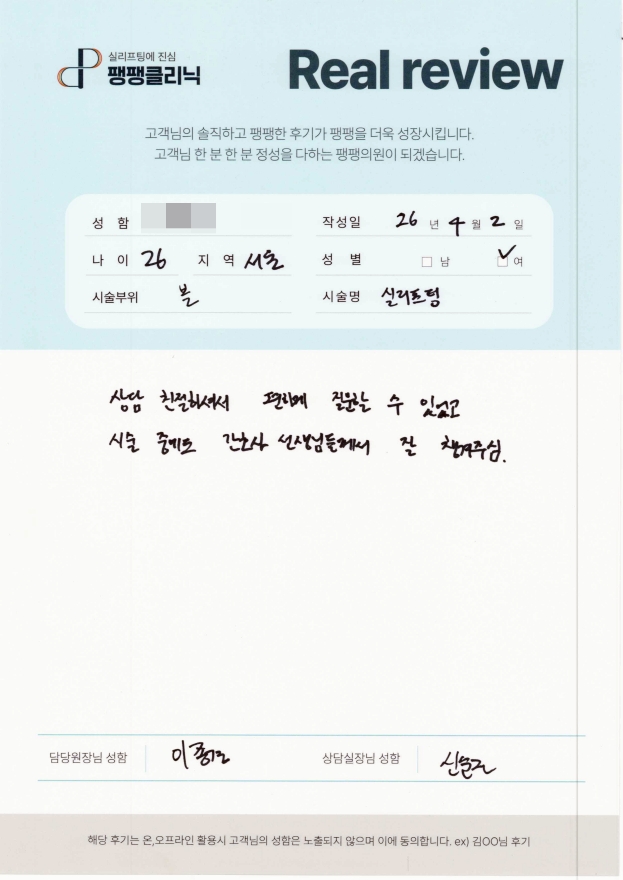 실리프팅에 진심
팽팽클리닉
Real review
고객님의 솔직하고 팽팽한 후기가 팽팽을 더욱 성장시킵니다.
고객님 한 분 한 분 정성을 다하는 팽팽의원이 되겠습니다.
성 함 작성일 26 년 4 월 2 일
나 이 26 지 역 서울 성 별 남 여
시술부위 볼 시술명 실리프팅
상담 친절하셔서 편하게 질문할 수 있었고
시술 중에도 간호사 선생님들께서 잘 챙겨주심.
담당원장님 성함 이 상담실장님 성함
해당 후기는 온,오프라인 활용시 고객님의 성함은 노출되지 않으며 이에 동의합니다. ex) 김OO님 후기